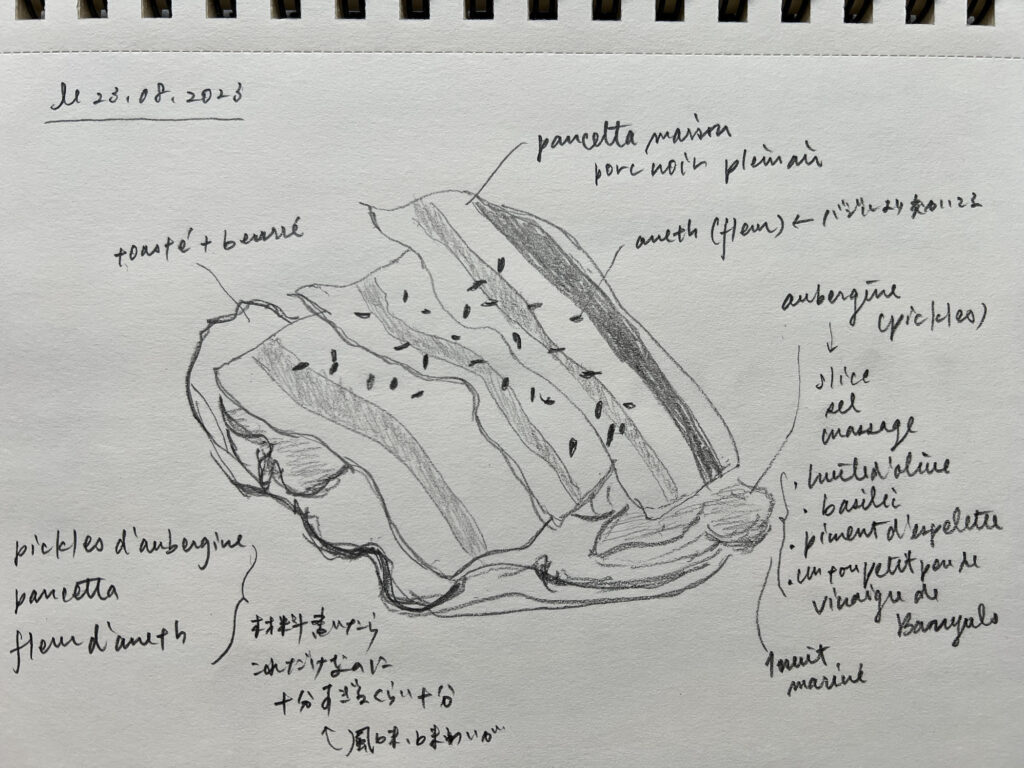 le 23.08.2023
pancetta maison
porc noir plein air
aneth (fleur) ← バジルより
toasté + beurré
aubergine
(pickles)
slice
sel
massage
・huile d'olive
・basilic
・piment d'espelette
・un tout petit peu de
vinaigre de
Banyuls
1 nuit
mariné
pickles d'aubergine
pancetta
fleur d'aneth
材料書いたら
これだけなのに
十分すぎるくらい十分
風味、味わいが